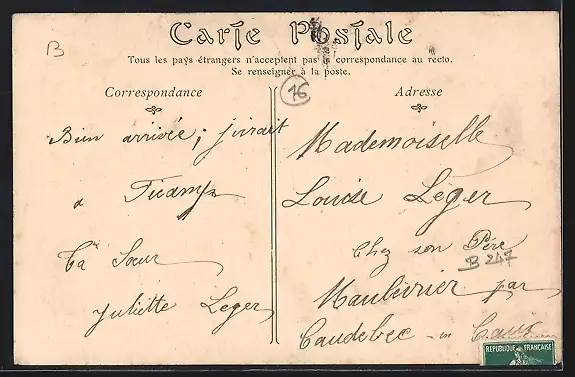 B
Carte Postale
Tous les pays étrangers n'acceptent pas la correspondance au recto.
Se renseigner à la poste.
16
Correspondance
Adresse
Bien arrivée, j'irait
a Ficamp
Ta Sœur
Juliette Leger
Mademoiselle
Louise Léger
Chez son Père
B 247
Maulévrier par
Caudebec-en Caux
REPUBLIQUE FRANÇAISE